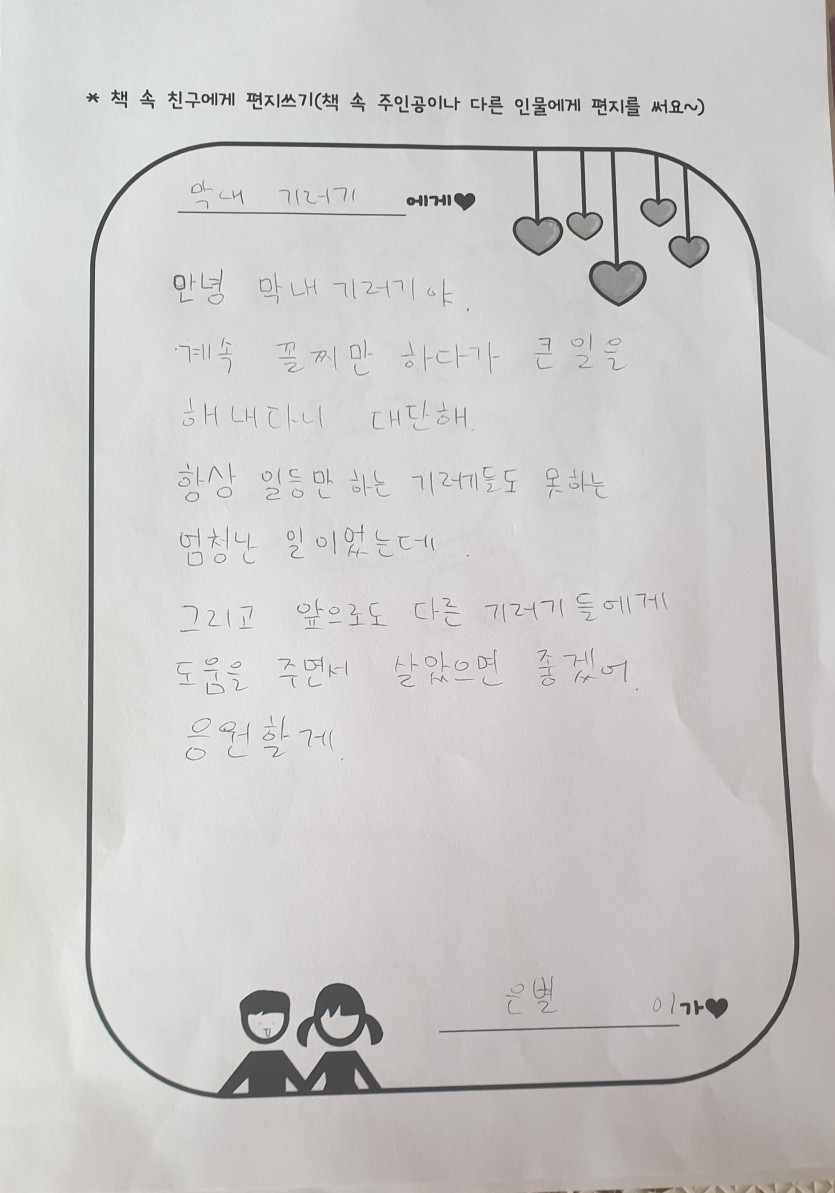 * 책 속 친구에게 편지쓰기(책 속 주인공이나 다른 인물에게 편지를 써요~)
막내 기러기 에게♥
안녕 막내 기러기야.
계속 꼴찌만 하다가 큰 일을
해내다니 대단해.
항상 일등만 하는 기러기들도 못하는
엄청난 일이었는데.
그리고 앞으로도 다른 기러기들에게
도움을 주면서 살았으면 좋겠어.
응원할게.
은별 이가♥